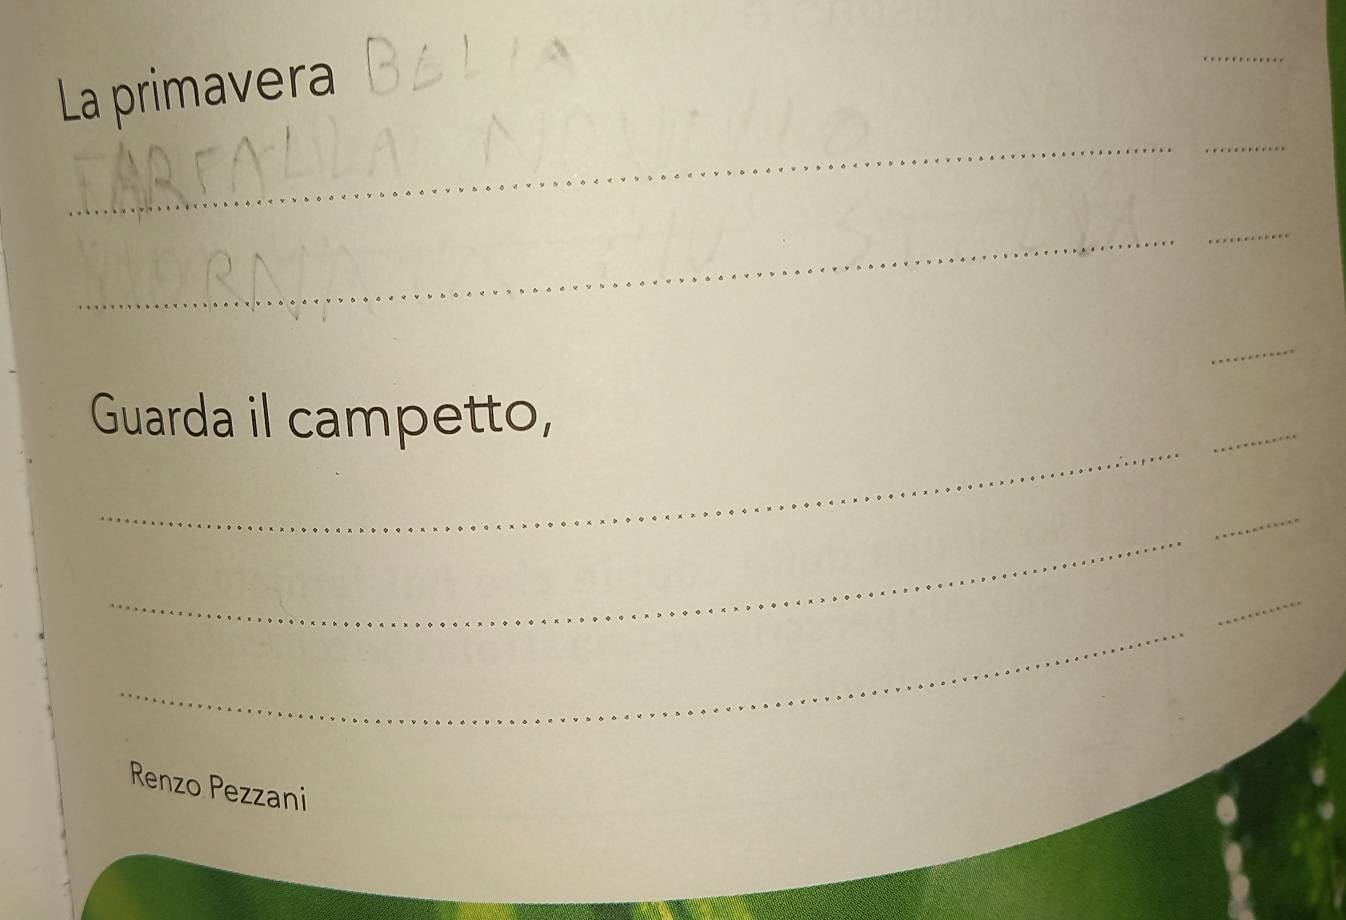 La primavera BELLA
FARFALLA NOVELLO
TORNA PIÙ
Guarda il campetto,
Renzo Pezzani